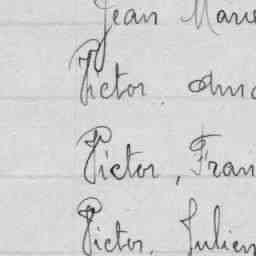 Jean Marie
Victor
Victor, Fran
Victor, Julien